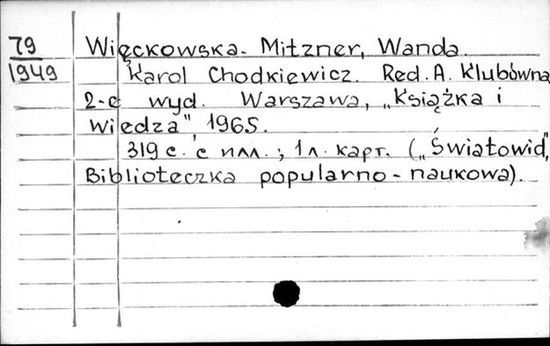 79 Więckowska-Mitzner, Wanda.
1949 Karol Chodkiewicz. Red. A. Klubówna
2-e wyd. Warszawa, „Książka i
Wiedza", 1965.
319 с. с илл.; 1 л. карт. („Światowid",
Biblioteczka popularno-naukowa).